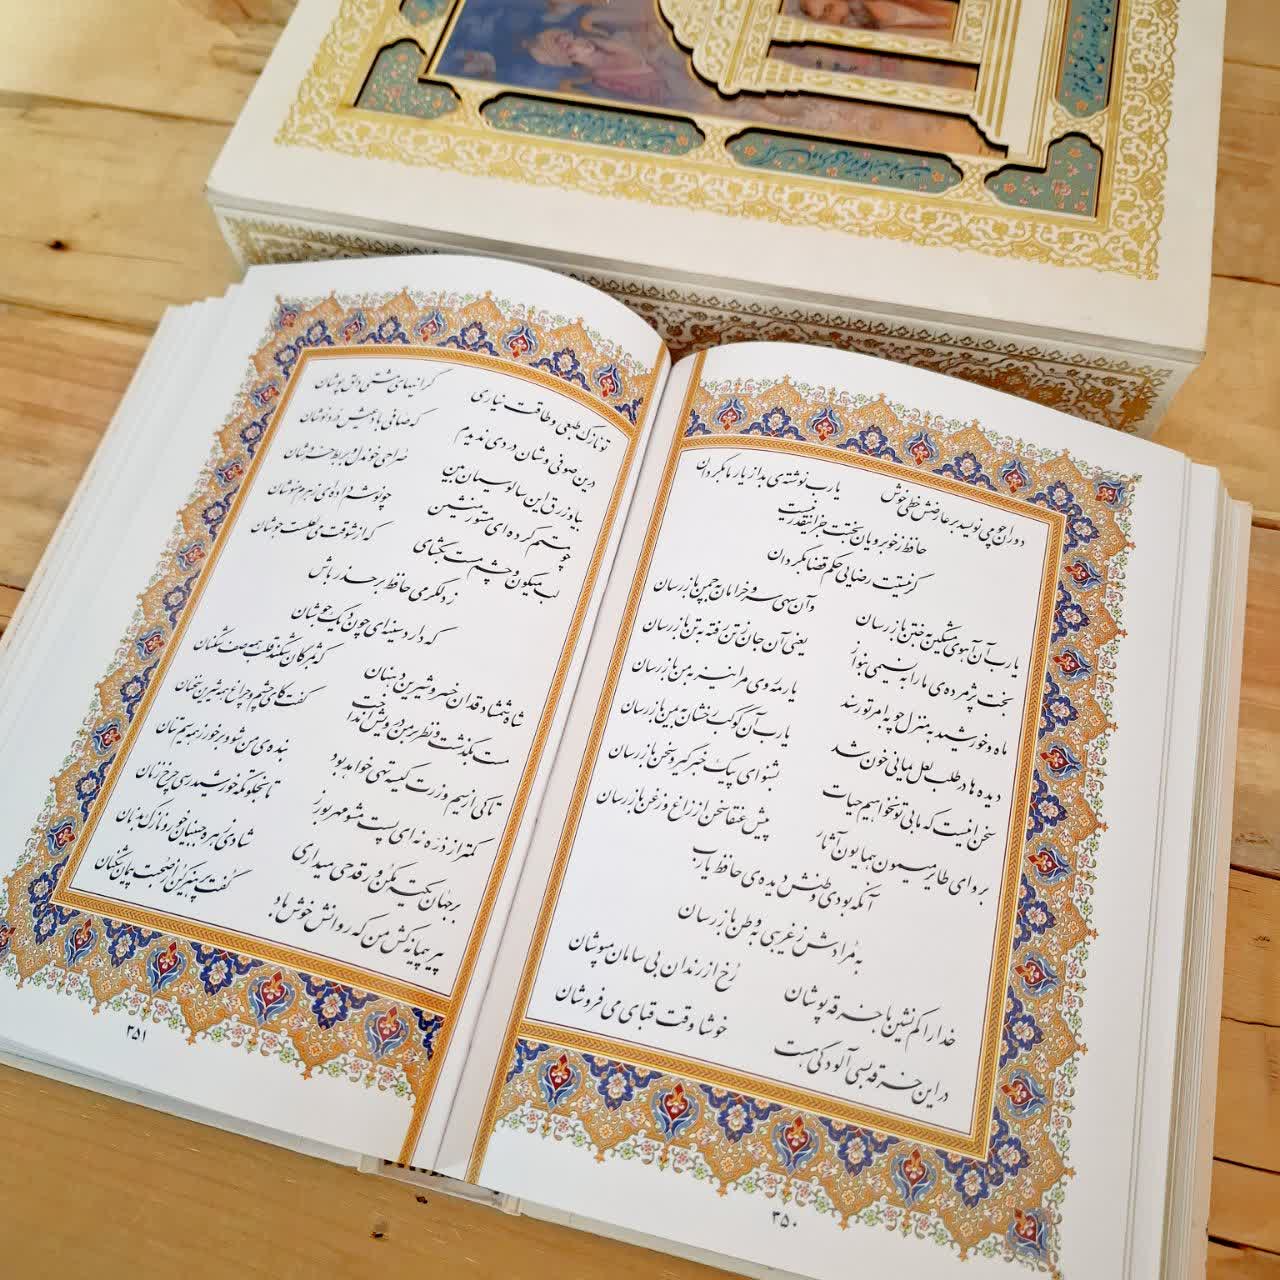 دوران چو می نویسد بر عارضش خطی خوش یارب نوشته‌ی بد از یار ما بگردان
حافظ ز خوبرویان بختت جز اینقدر نیست
گر نیستت رضایی حکم قضا بگردان
یارب آن آهوی مشکین به ختن باز رسان وآن سهی سرو خرامان به چمن باز رسان
بخت پژمرده‌ی ما را به نسیمی بنواز یعنی آن جان ز تن رفته به تن باز رسان
ماه و خورشید به منزل چو به امر تو رسند یار مه روی مرا نیز به من باز رسان
دیده‌ها در طلب لعل یمانی خون شد یارب آن کوکب رخشان به یمن باز رسان
سخن اینست که ما بی تو نخواهیم حیات بشنو ای پیک خبرگیر و سخن باز رسان
برو ای طایر میمون همایون آثار پیش عنقا سخن از زاغ و زغن باز رسان
آنکه بودی وطنش دیده‌ی حافظ یارب
به مرادش ز غریبی به وطن باز رسان
خدا را کم نشین با خرقه پوشان رخ از رندان بی سامان مپوشان
در این خرقه بسی آلودگی هست خوشا وقت قبای می فروشان
۳۵۰
تو نازک طبعی و طاقت نیاری گرانیهای مشتی دلق پوشان
درین صوفی وشان دردی ندیدم که صافی باد عیش دردنوشان
بیا وز زرق این سالوسیان بین صراحی خون دل بربط خروشان
چو مستم کرده‌ای مستور منشین چو نوشم داده‌ای زهرم منوشان
لب میگون و چشم مست بگشای که از شوقت می لعلست جوشان
ز دلگرمی حافظ بر حذر باش
که دارد سینه‌ای چون دیگ جوشان
شاه شمشاد قدان خسرو شیرین دهنان که به مژگان شکند قلب همه صف شکنان
مست بگذشت و نظر بر من درویش انداخت گفت کای چشم و چراغ همه شیرین سخنان
تا کی از سیم و زرت کیسه تهی خواهد بود بنده‌ی من شو و برخور ز همه سیمتنان
کمتر از ذره نه‌ای پست مشو مهر بورز تا بخلوتگه خورشید رسی چرخ زنان
بر جهان تکیه مکن ور قدحی می داری شادی زهره جبینان خور و نازک بدنان
پیر پیمانه کش من که روانش خوش باد گفت پرهیز کن از صحبت پیمان شکنان
۳۵۱